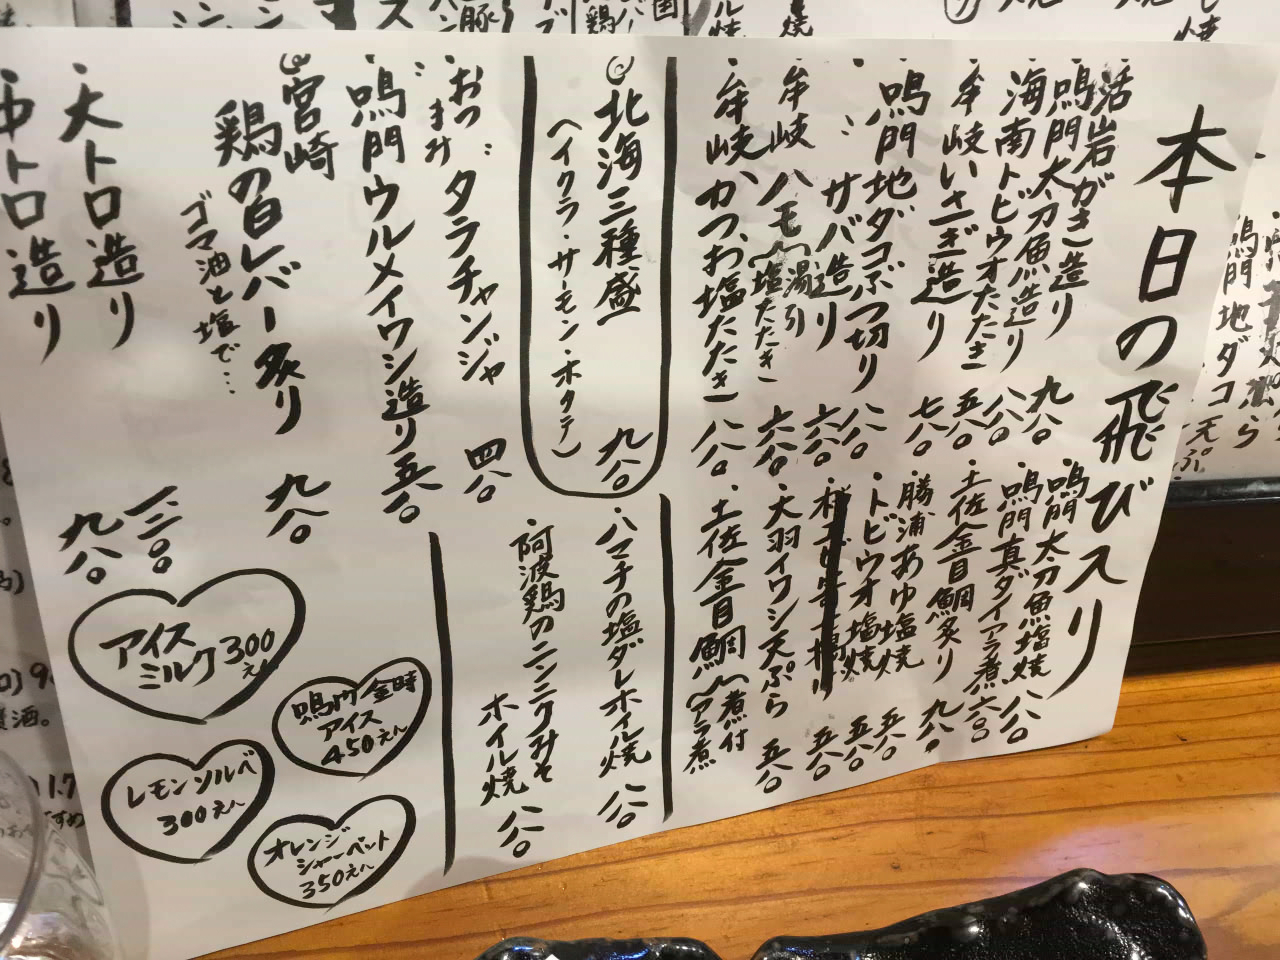 本日の飛び入り
・活岩がき造り
・鳴門太刀魚造り 九八〇
・海南トビウオたたき 八八〇
・牟岐いさぎ造り 五八〇
七八〇
・鳴門地ダコぶつ切り 八八〇
〃 サバ造り 六八〇
・牟岐ハモ(湯引
塩たたき 六八〇
・牟岐、かつお塩たたき 八八〇
・鳴門太刀魚塩焼 八八〇
・鳴門真ダイアラ煮 六八〇
・土佐金目鯛炙り 九八〇
・勝浦あゆ塩焼 五八〇
・トビウオ塩焼 五八〇
五八〇
・大羽イワシ天ぷら 五八〇
・土佐金目鯛(煮付
アラ煮
北海三種盛 九八〇
(イクラ・サーモン・ホタテ)
・おつまみ タラチャンジャ 四八〇
・鳴門ウルメイワシ造り 五八〇
宮崎鶏の白レバー炙り 九八〇
ゴマ油と塩で…
・大トロ造り 一二八〇
・中トロ造り 九八〇
・ハマチの塩ダレホイル焼 八八〇
・阿波鶏のニンニクみそ
ホイル焼 八八〇
アイス
ミルク 300
えん
鳴門金時
アイス
450えん
レモンソルベ
300えん
オレンジ
シャーベット
350えん
鳴門地ダコ天ぷら